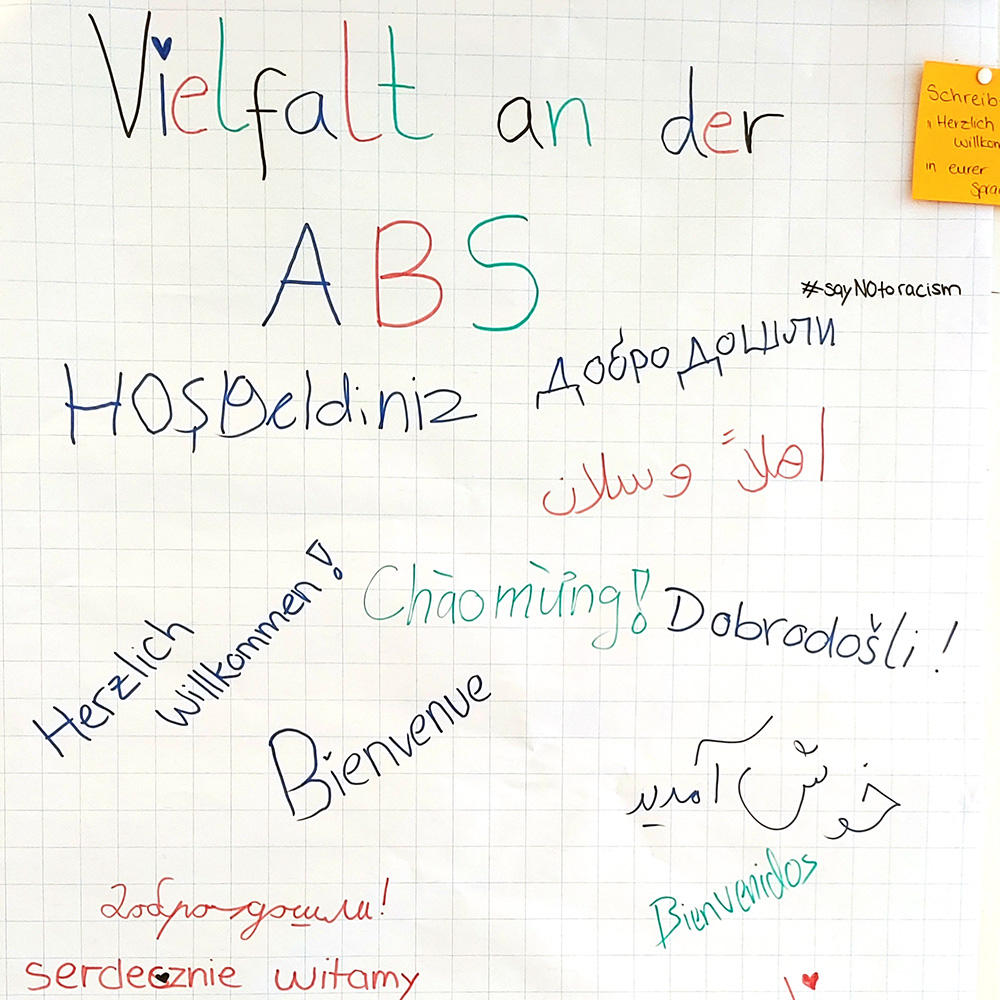 Vielfalt an der
ABS
Schreib
"Herzlich
willkom
in eurer
Sprac
#sayNOtoracism
Добро дошли
HOŞGeldiniz
اهلاً و سلان
Herzlich
willkommen!
Chào mừng!
Dobrodošli!
Bienvenue
خوش آمدید
Bienvenidos
Добро дошли!
serdecznie witamy